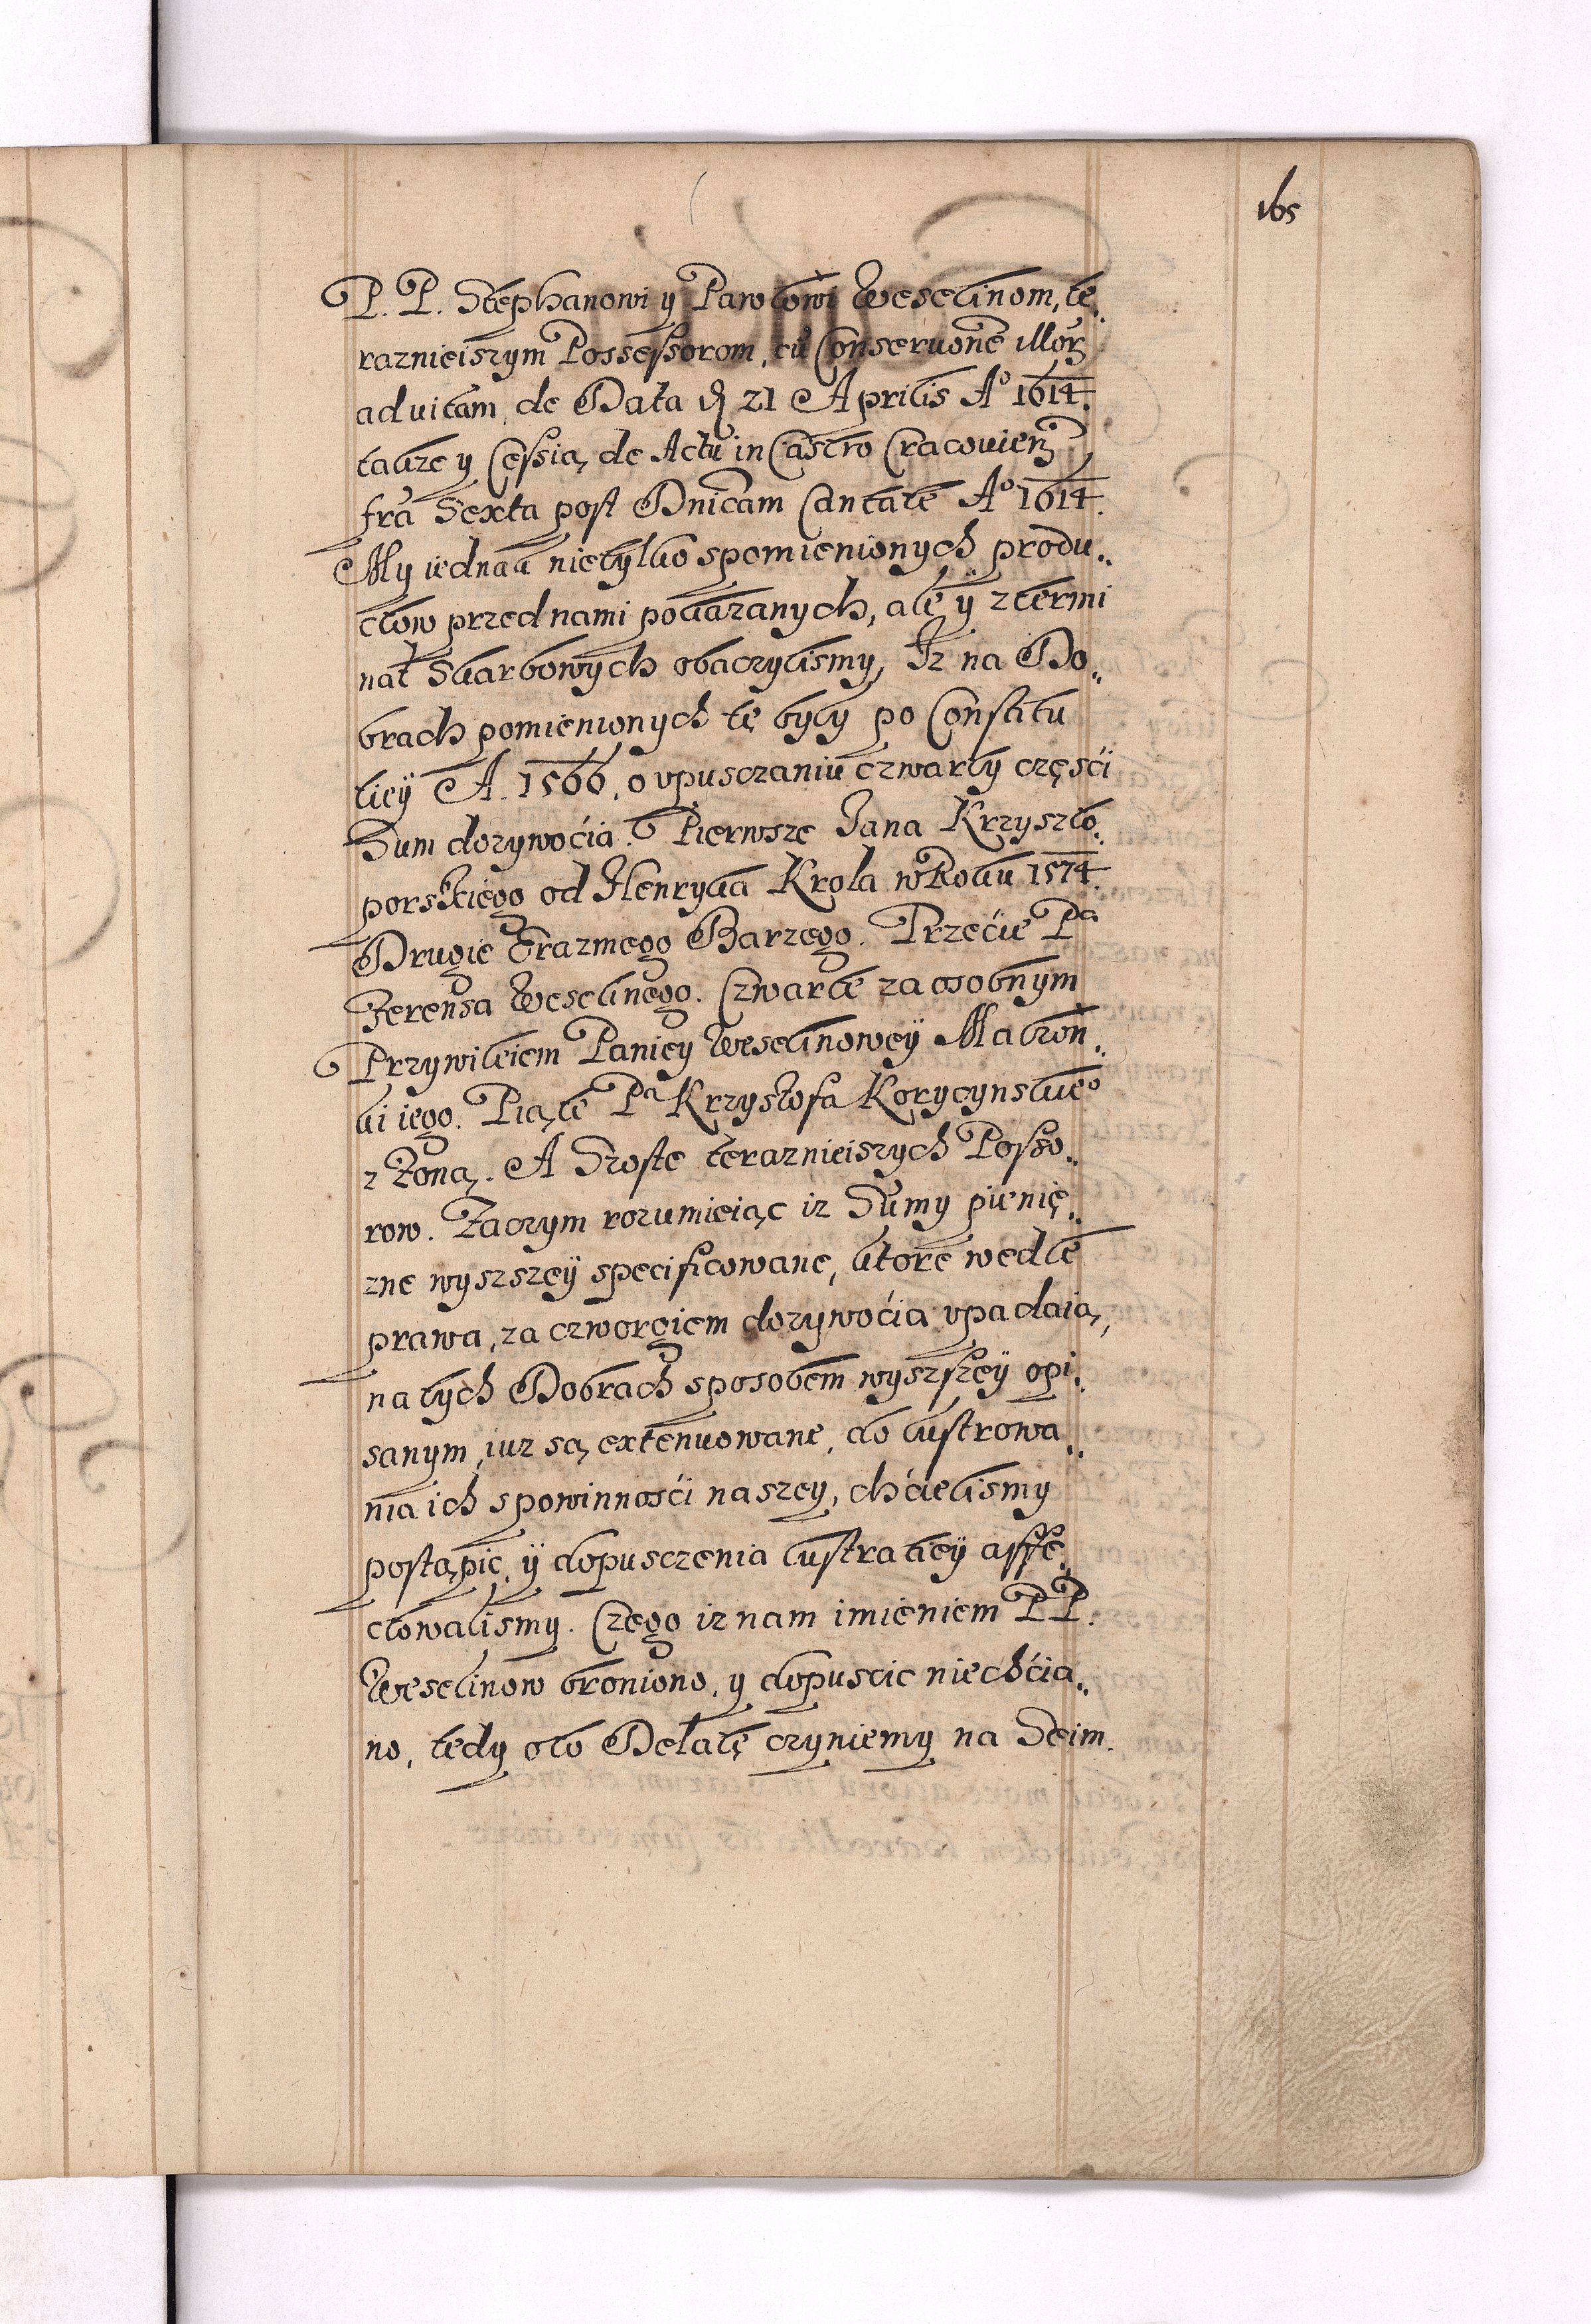 165
P. P. Stephanowi y Pawłowi Weselinom, te„
raznieiszym Possessorom, cũ Conseruõne illor̃
ad uitam, de Data d. 21 Aprilis Aº 1614.
takze y Cessią, de Actu in Castro Cracouień
fr̃a Sexta post Dnĩcam Cantate Aº 1614.
My iednak nietylko spomienionych produ„
ctow przed nami pokazanych, ale ÿ z termi
nat Skarbowych obaczylismy, Jz na Do„
brach pomienionych te były po Constitu
tiey A. 1566, o vpusczaniu czwarty częsći
Sum dozywoćia. Pierwsze Jana Krzyszto„
porskiego od Henryka Krola w Roku 1574.
Drugie Erazmego Barzego. Trzećie Pª
Ferensa Weselinego. Czwarte za osobnym
Przywileiem Paniey Weselinowey Małzon„
ki iego. Piąte Pª Krzysztofa Korycynskieº
z Zoną. A Szoste teraznieiszych Posso„
row. Zaczym rozumieiąc iz Sumy pienię„
zne wyszszey specificowane, ktore wedle
prawa, za czworgiem dozywoćia vpadaią,
na tych Dobrach sposobem wyszszey opi„
sanym, iuz są extenuowane, do lustrowa„
nia ich s powinnosći naszey, chćielismy
postąpic, ÿ dopusczenia lustratiey affe„
ctowalismy. Czego iz nam imieniem P.P.
Weselinow broniono, y dopuscic niechćia„
no, tedy oto Delatę czyniemy na Seim.